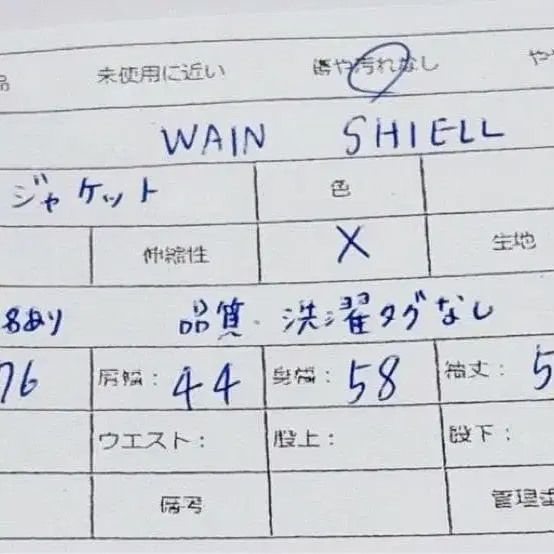 品 未使用に近い 傷や汚れなし や
WAIN SHIELL
ジャケット 色
伸縮性 X 生地
名あり 品質・洗濯タグなし
76 肩幅: 44 身幅: 58 袖丈: 5
ウエスト: 股上: 股下:
備考 管理番